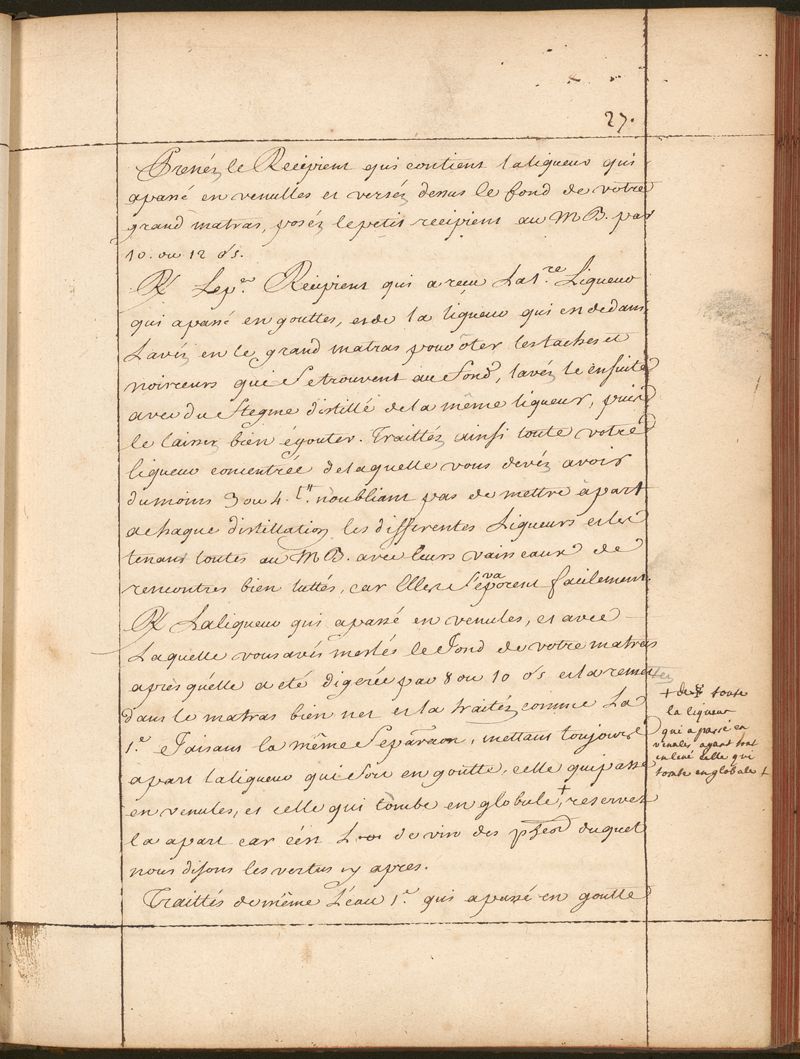 27.
Prenéz le Recipient qui contient laliqueur qui
apassé en venulles et verséz dessus le fond de votre
grand matras, poséz lepetit recipient au M B. par
10. ou 12 o's.
R/ Lep.er Recipient qui a recu La1.re Liqueur
qui apassé en gouttes, et de la liqueur qui en dedans,
Lavéz en le grand matras pour ôter les taches et
noirceurs qui Setrouvent au Fond, lavéz le ensuite
avec du flegme distillé de la même liqueur, puis
le laisser bien égouter. Traittéz ainsi toute votre
liqueur concentrée delaquelle vous devéz avoir
dumoins 3 ou 4. l". n'oubliant pas de mettre àpart
achaque distillation les differentes Liqueurs et les
tenant toutes au M B. avec leurs vaisseaux de
rencontres bien luttés, car Elles Sevaporent facilement.
R/ Laliqueur qui apassé en venules, et avec
Laquelle vous avés meslés le Fond de votre matras
après qu'elle a eté digerée par 8 ou 10 o's et la remettez
dans le matras bien net et la traitéz comme La
1.e Faisant la même Separãon, mettant toujours
apart laliqueur qui Sort en goutte, celle qui passe
en venules, et celle qui tombe en globule, + reservez
la apart car c'est L de vin des duquel
nous disons les vertus cy apres.
Traittés demême L'eau 1.e qui apassé en goutte
+ de toute
la liqueur
qui a passé en
venules ayant tout
enlevé celle qui
tombe en globule +